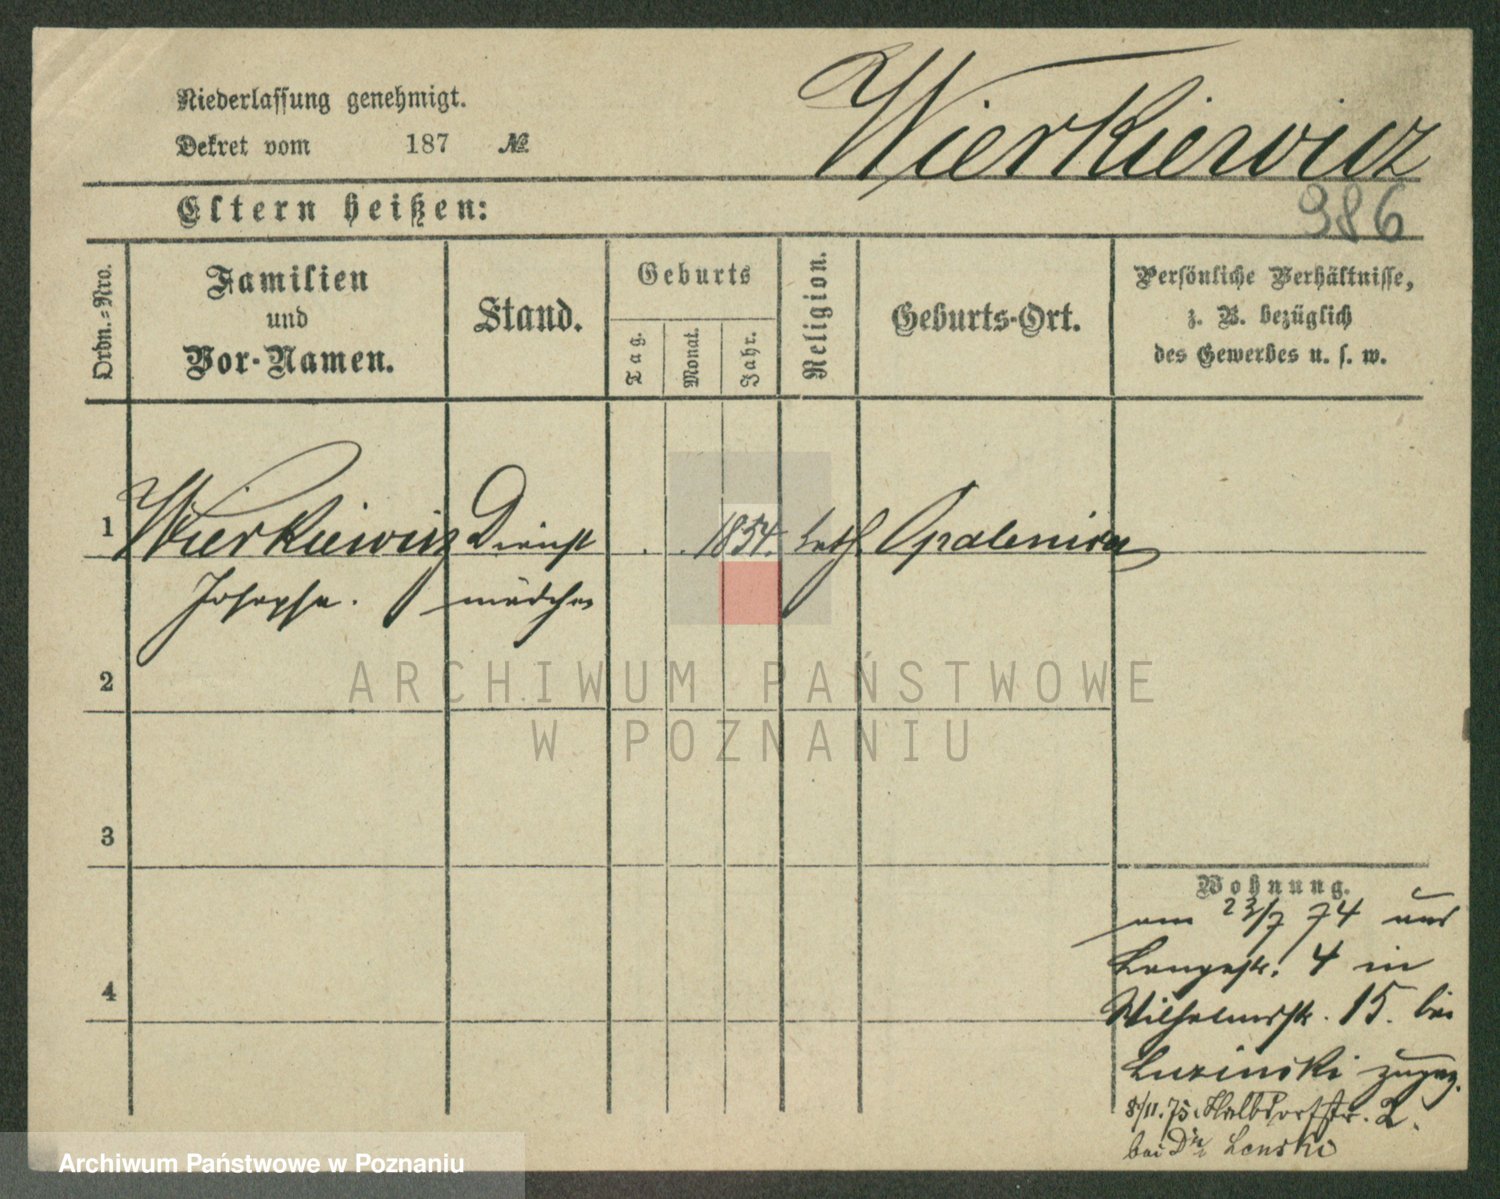 Niederlassung genehmigt.
Dekret vom 187 №
Wierkiewicz
986
Eltern heißen:
Ordn.-Nro.
Familien
und
Vor-Namen.
Stand.
Geburts
Tag.
Monat.
Jahr.
Religion.
Geburts-Ort.
Persönliche Verhältnisse,
z. B. bezüglich
des Gewerbes u. s. w.
1 Wierkiewicz Dienst . . 1854. kath. Opalenica
Josepha. mädchen
2
ARCHIWUM PAŃSTWOWE
W POZNANIU
3
4
Wohnung.
am 23/7 74 aus
Langestr. 4 in
Wilhelmstr. 15. bei
zugez.
8/11. 75. Halbdorfstr. 2.
bei Lenski
Archiwum Państwowe w Poznaniu